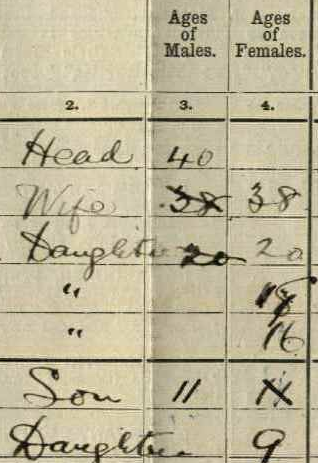 Ages of Males.
Ages of Females.
2. 3. 4.
Head 40
Wife 38 38
Daughter 20 20
" 18
" 16
Son 11 11
Daughter 9